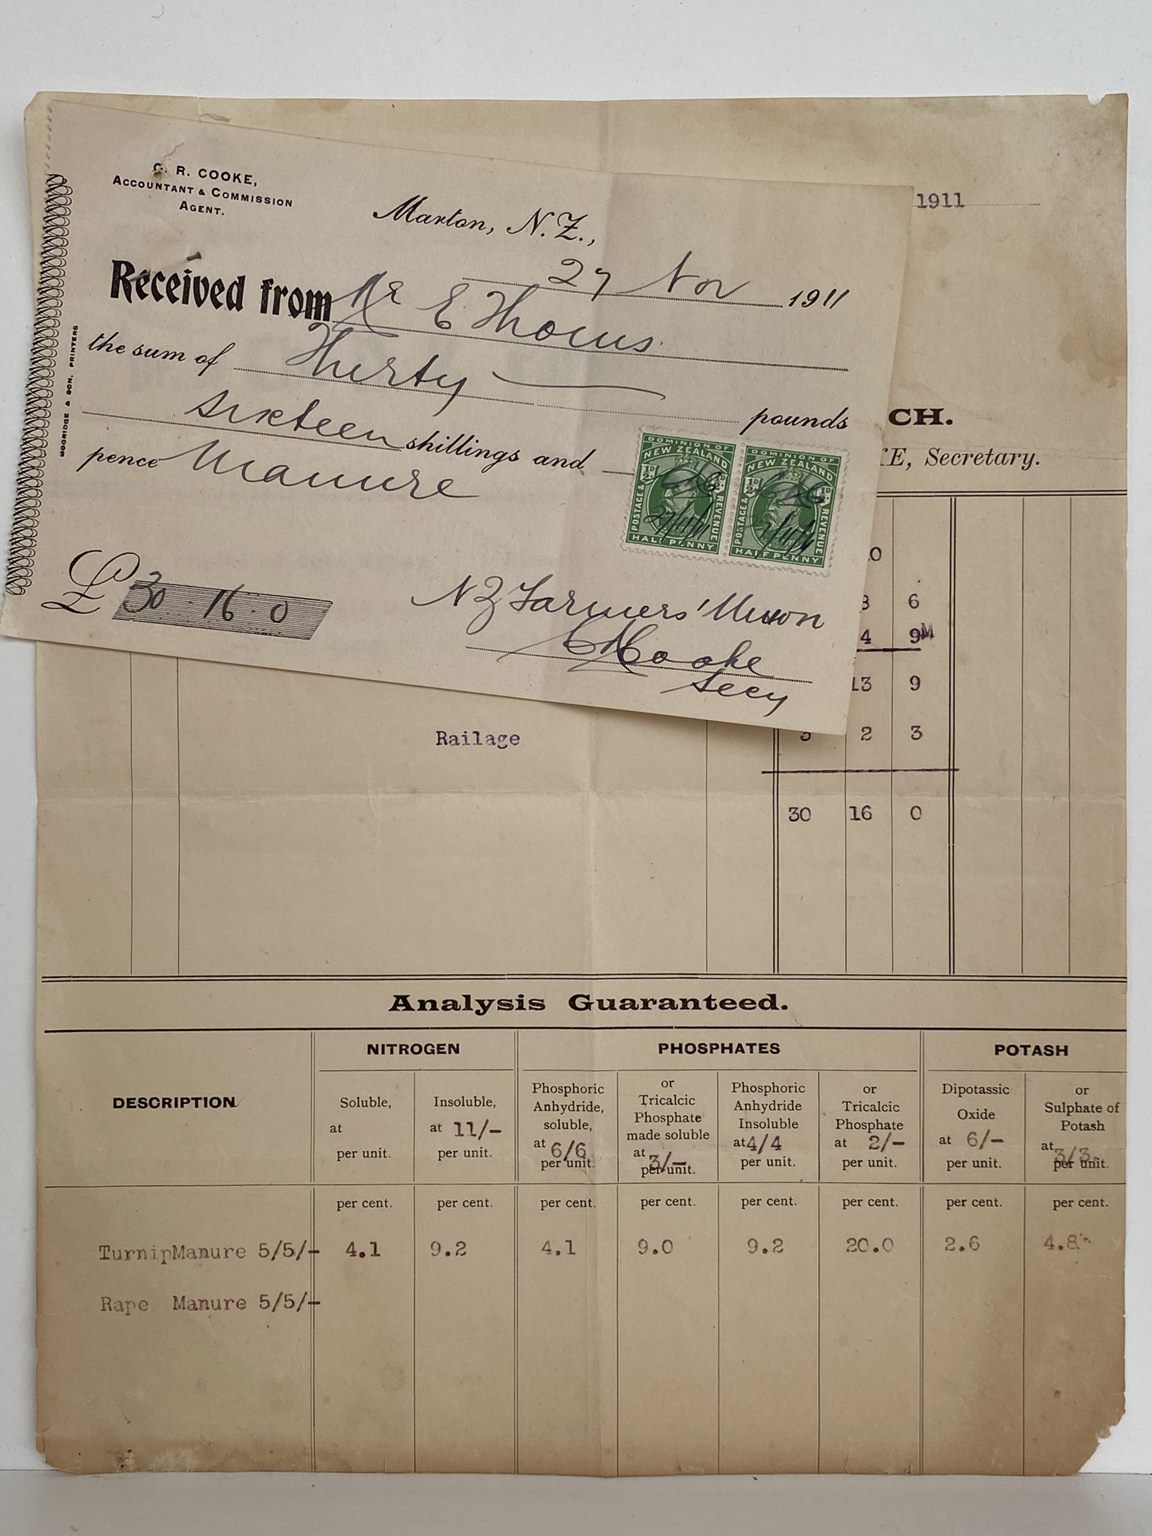 C. R. COOKE,
ACCOUNTANT & COMMISSION
AGENT.
Marton, N.Z.,
27 Nov 1911
Received from Mr E Thoms
the sum of Thirty pounds
sixteen shillings and
pence Manure
£ 30 - 16 - 0
NZ Farmers' Union
C R Cooke
Secy
& SON, PRINTERS
DOMINION OF NEW ZEALAND
POSTAGE & REVENUE
HALF PENNY
DOMINION OF NEW ZEALAND
POSTAGE & REVENUE
HALF PENNY
1911
CH.
KE, Secretary.
6
4 9
13 9
Railage 2 3
30 16 0
Analysis Guaranteed.
DESCRIPTION NITROGEN PHOSPHATES POTASH
Soluble, at per unit.
Insoluble, at 11/- per unit.
Phosphoric Anhydride, soluble, at 6/6 per unit.
or Tricalcic Phosphate made soluble at 3/- per unit.
Phosphoric Anhydride Insoluble at 4/4 per unit.
or Tricalcic Phosphate at 2/- per unit.
Dipotassic Oxide at 6/- per unit.
or Sulphate of Potash at 3/3- per unit.
per cent. per cent. per cent. per cent. per cent. per cent. per cent. per cent.
TurnipManure 5/5/- 4.1 9.2 4.1 9.0 9.2 20.0 2.6 4.8
Rape Manure 5/5/-